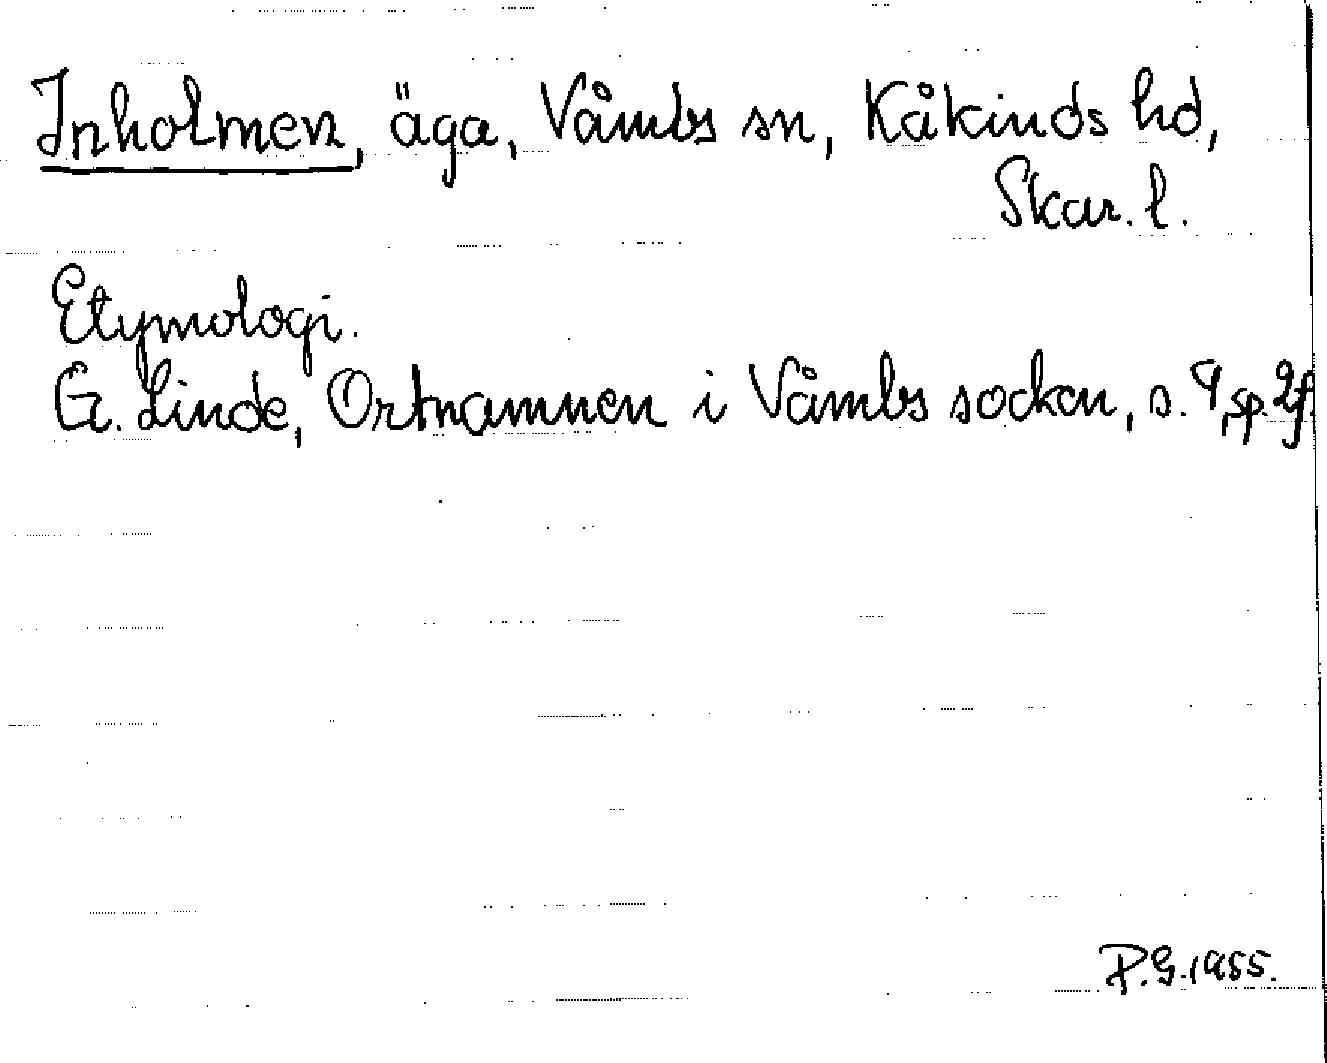 Inholmen, äga, Våmbs sn, Kåkinds hd,
Skar. l.
Etymologi.
G. Linde, Ortnamnen i Våmbs socken, s. 9, sp. 2 f.
P.G. 1955.